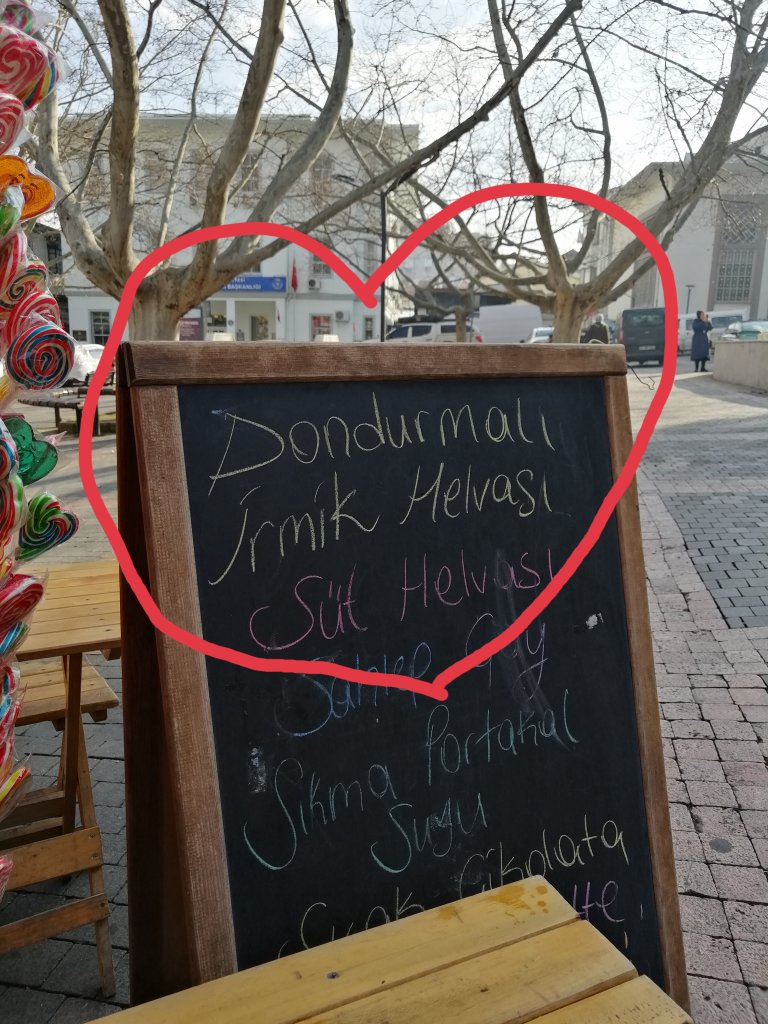 BAŞKANLIĞI
Dondurmalı
İrmik Helvası
Süt Helvası
Sahlep Çay
Sıkma Portakal
Suyu
Sıcak Çikolata